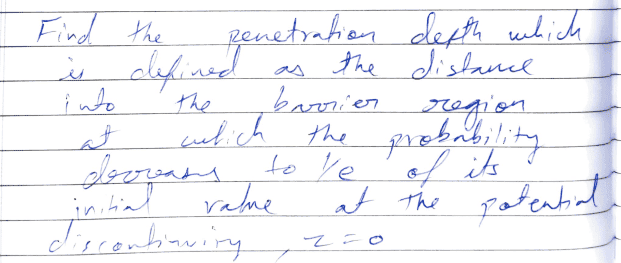 Find the penetration depth which
is defined as the distance
into the barrier region
at which the probability
decreases to 1/e of its
initial value at the potential
discontinuity, z=0